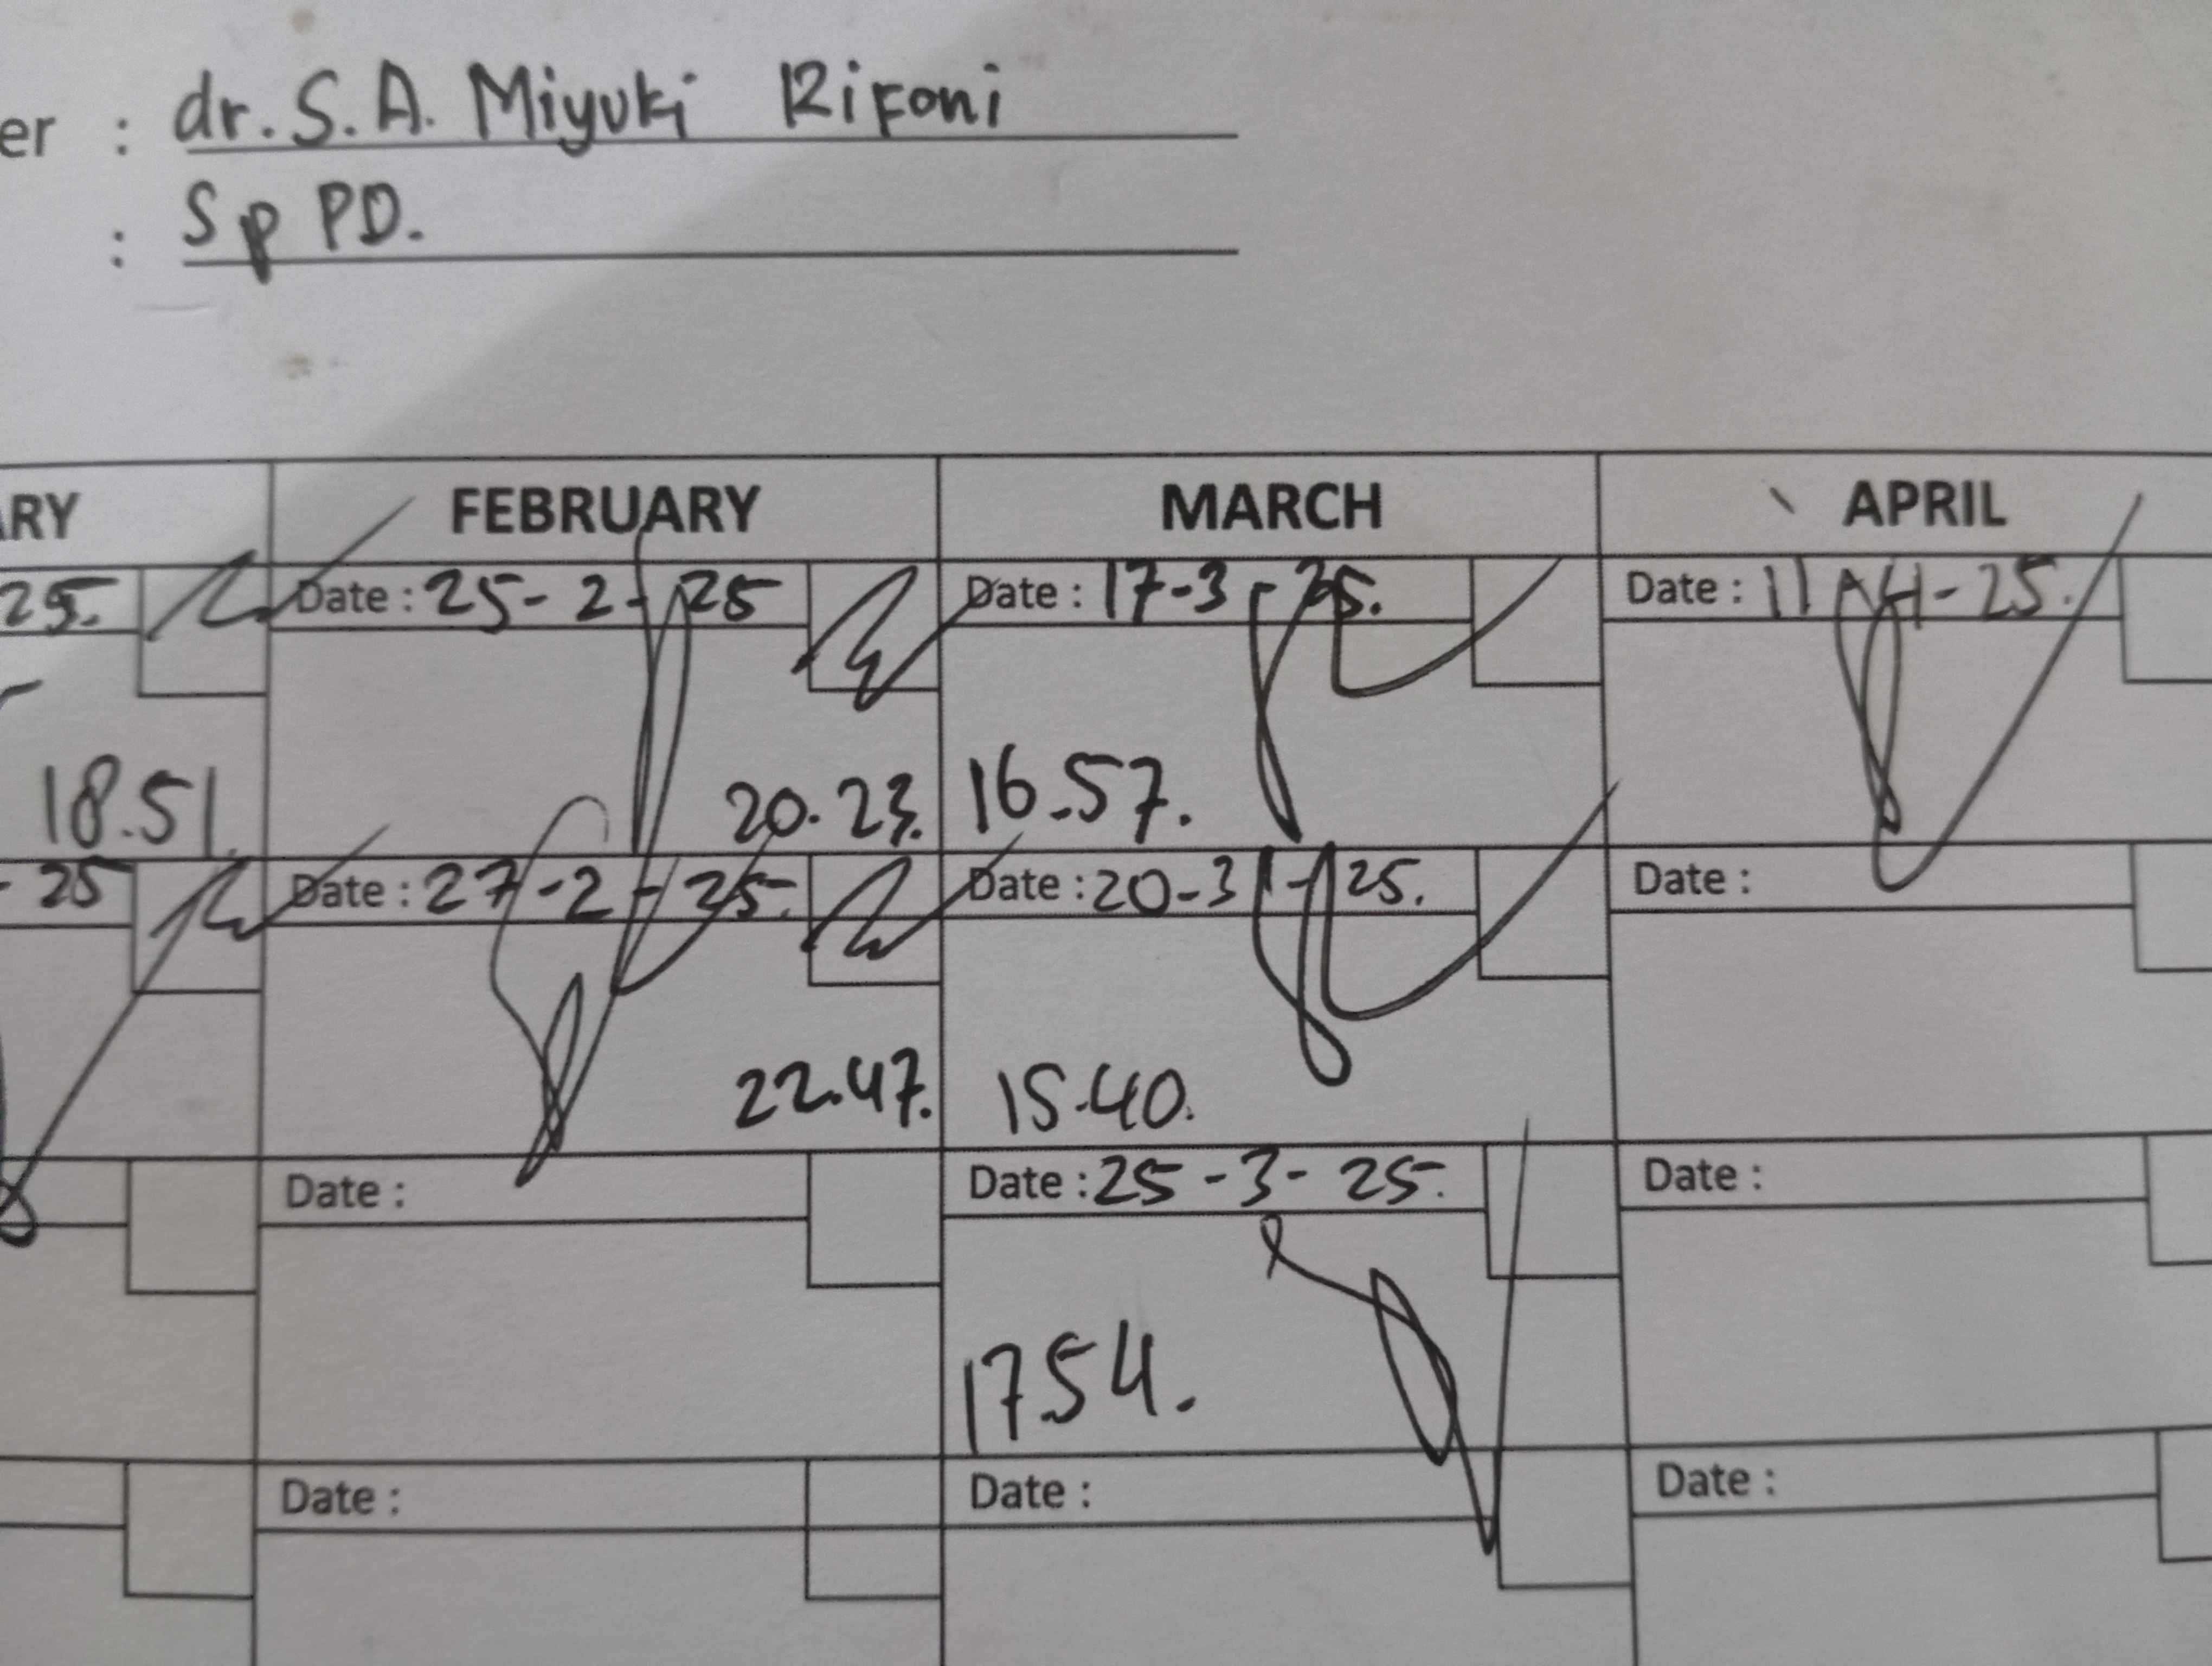 er : dr. S. A. Miyuki Rifoni
: Sp PD.
ARY FEBRUARY MARCH APRIL
25. Date : 25-2-25 Date : 17-3-25. Date : 11-4-25.
18.51. 20.23. 16.57.
- 25 Date : 27-2-25. Date : 20-3-25. Date :
22.47. 15.40.
Date : Date : 25-3-25. Date :
17.54.
Date : Date : Date :